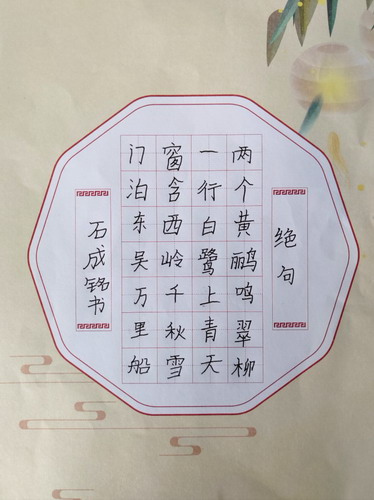 绝句
两个黄鹂鸣翠柳
一行白鹭上青天
窗含西岭千秋雪
门泊东吴万里船
石成铭书